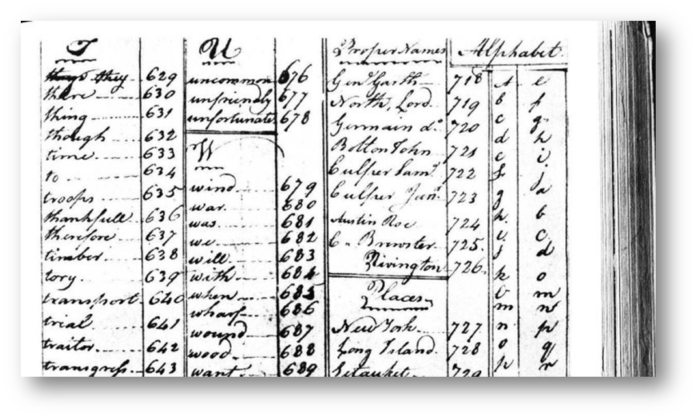 T
they 629
there 630
thing 631
though 632
time 633
to 634
troops 635
thankfull 636
therefore 637
timber 638
tory 639
transport 640
trial 641
traitor 642
transgress 643
U
uncommon 676
unfriendly 677
unfortunate 678
W
wind 679
war 680
was 681
we 682
will 683
with 684
when 685
wharf 686
wound 687
wood 688
want 689
Proper Names
Genl. Garth 718
North, Lord 719
Germain do. 720
Bolton John 721
Culper Saml. 722
Culper Junr. 723
Austin Roe 724
C. Brewster 725
Rivington 726
Places
New York 727
Long Island 728
Setauket 729
Alphabet
a e
b f
c g
d h
e i
f j
g a
h b
i c
j d
k o
l m
m n
n p
o q
p r